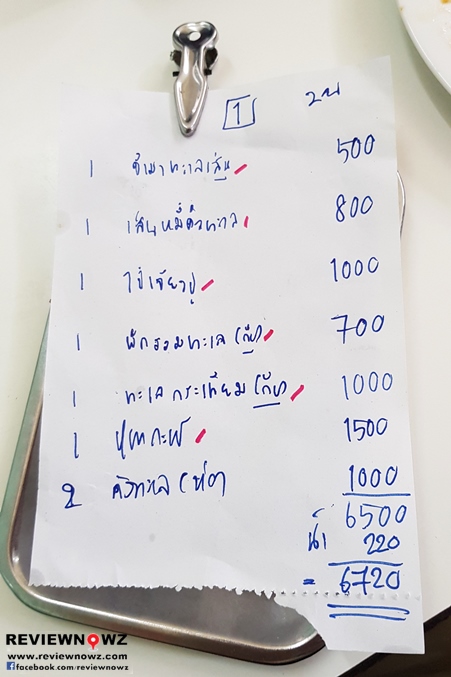 1
1 ขี้เมาทะเลเส้น 500
1 เส้นหมี่คั่วทะเล 800
1 ไข่เจียวปู 1000
1 ผักรวมทะเล (กับ) 700
1 ทะเลกระเทียม (กับ) 1000
1 1500
2 คั่วทะเล (ห่อ) 1000
6500
น้ำ 220
= 6720
REVIEWNOWZ
www.reviewnowz.com
facebook.com/reviewnowz